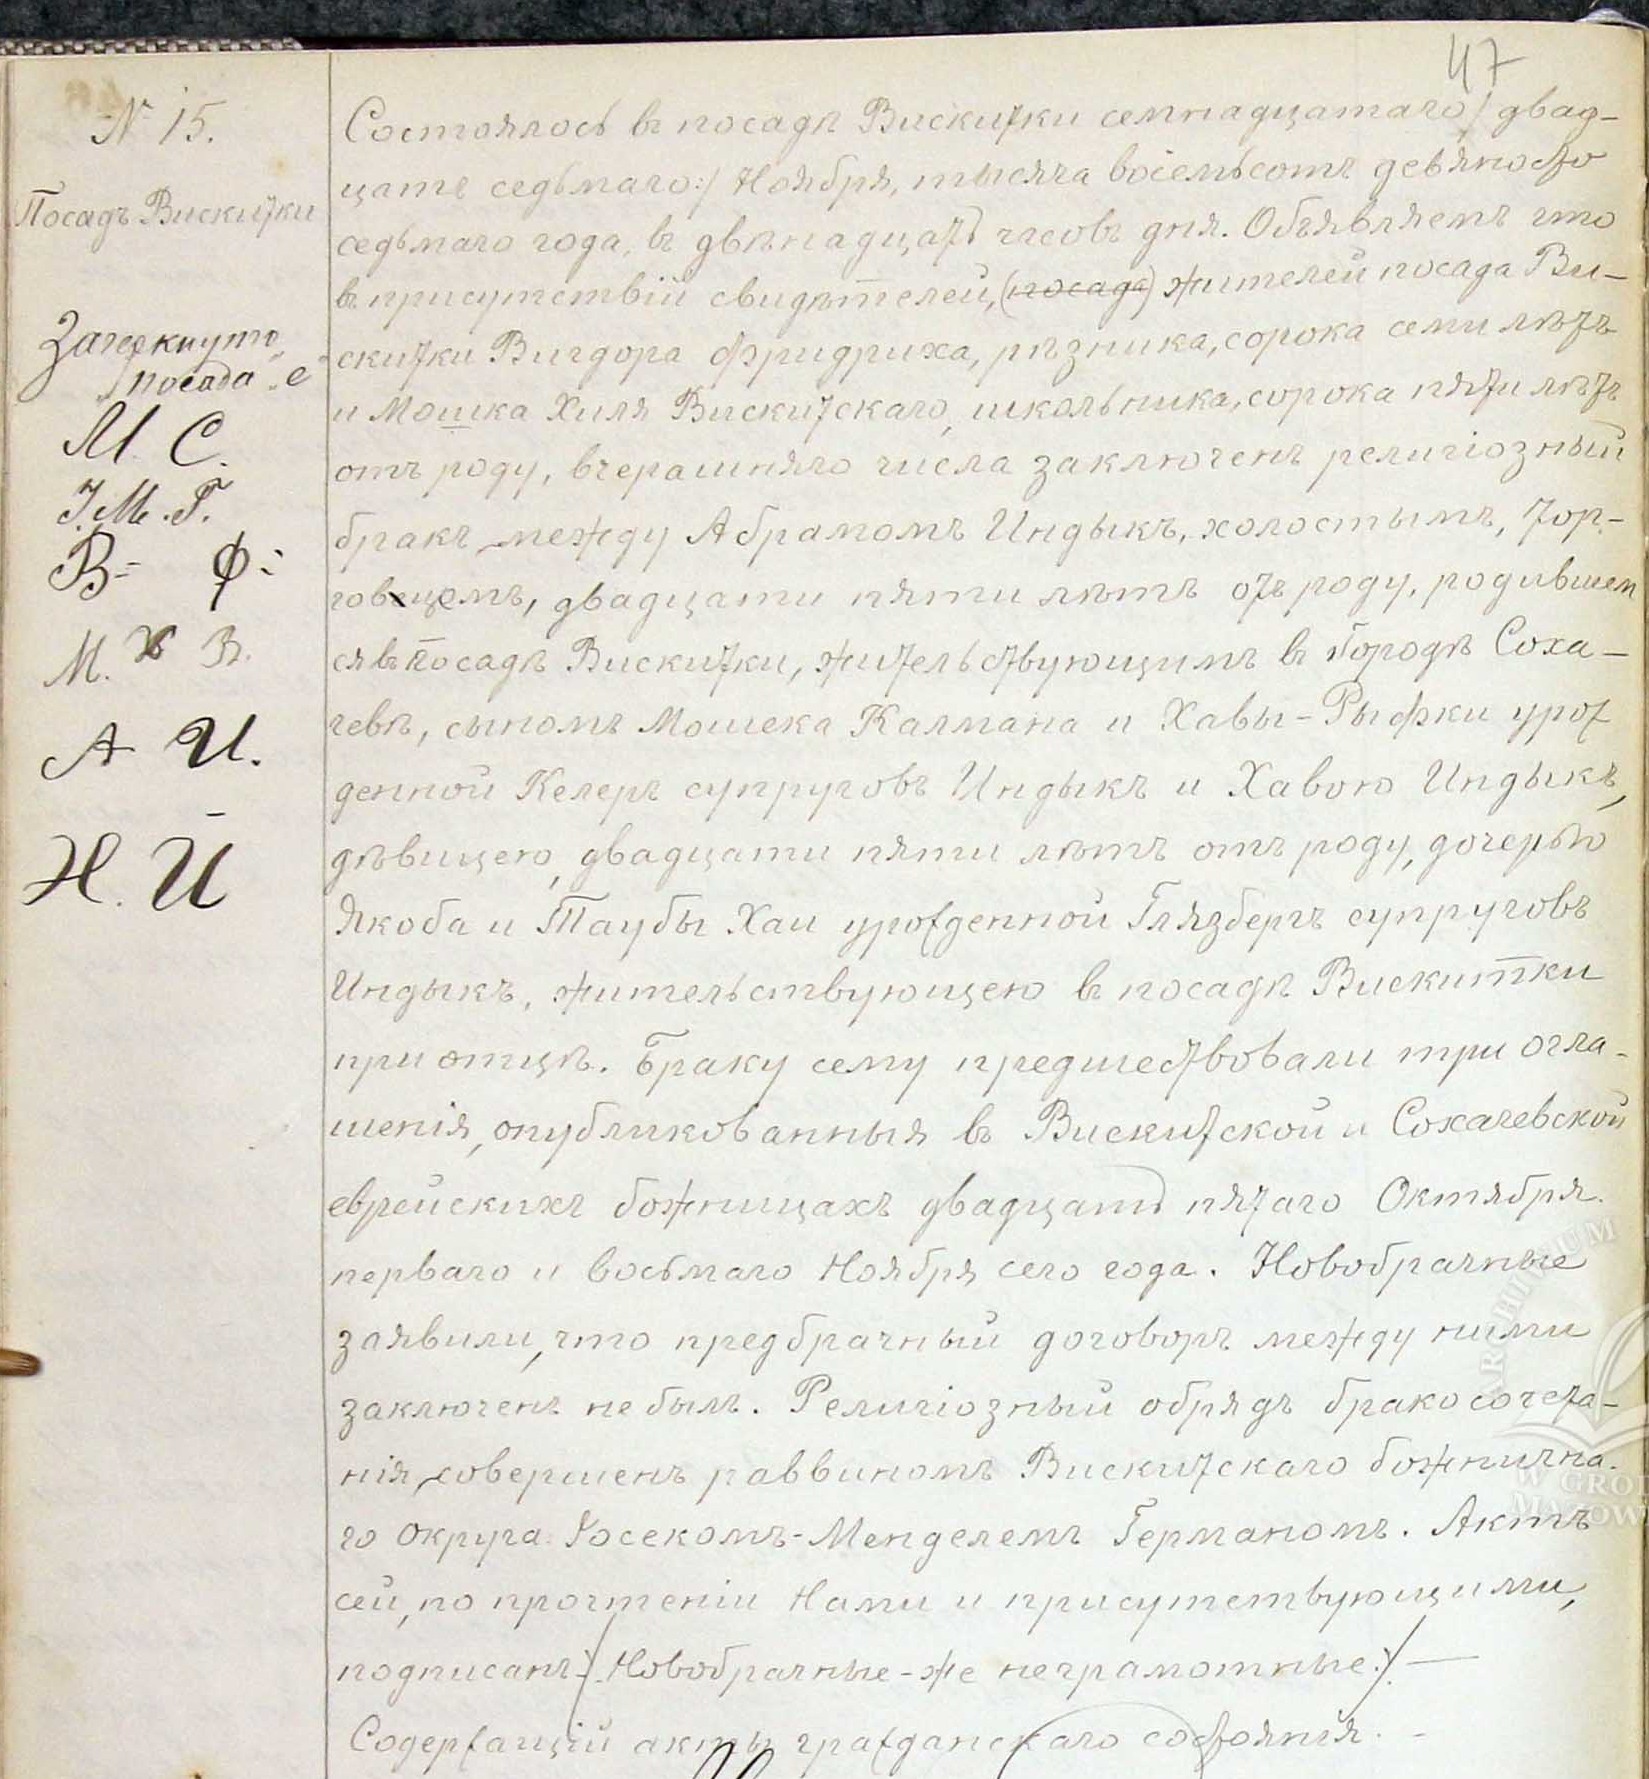 47
№ 15.
Посадъ Вискитки
Зачеркнуто
„посада“ е
М. С.
І. М. Г.
В= Ф=
М. Х В.
А И.
Н. И
Состоялось въ посадѣ Вискитки семнадцатаго/ двад-
цать седьмаго:/ Ноября, тысяча восемьсотъ девяносто
седьмаго года, въ двѣнадцать часовъ дня. Объявляемъ что
въ присутствіи свидѣтелей, (посада) жителей посада Ви-
скитки Вигдора Фридриха, рѣзника, сорока семи лѣтъ
и Мошка Хиля Вискитскаго, школьника, сорока пяти лѣтъ
отъ роду, вчерашняго числа заключенъ религіозный
бракъ между Абрамомъ Индыкъ, холостымъ, тор-
говцемъ, двадцати пяти лѣтъ отъ роду, родившем
ся въ посадѣ Вискитки, жительствующимъ въ Городѣ Соха-
чевѣ, сыномъ Мошека Калмана и Хавы-Рыфки урож
денной Келеръ супруговъ Индыкъ и Хавою Индыкъ,
дѣвицею, двадцати пяти лѣтъ отъ роду, дочерью
Якоба и Таубы Хаи урожденной Глязбергъ супруговъ
Индыкъ, жительствующею въ посадѣ Вискитки
при отцѣ. Браку сему предшествовали три огла-
шенія, опубликованныя въ Вискитской и Сохачевской
еврейскихъ божницахъ двадцать пятаго Октября
перваго и восьмаго Ноября сего года. Новобрачные
заявили, что предбрачный договоръ между ними
заключенъ не былъ. Религіозный обрядъ бракосочета-
нія, совершенъ раввиномъ Вискитскаго божнична-
го округа Іосекомъ-Менделемъ Германомъ. Актъ
сей, по прочтеніи Нами и присутствующими,
подписанъ/. Новобрачные-же неграмотные./ —
Содержащій акты гражданскаго состоянія. -